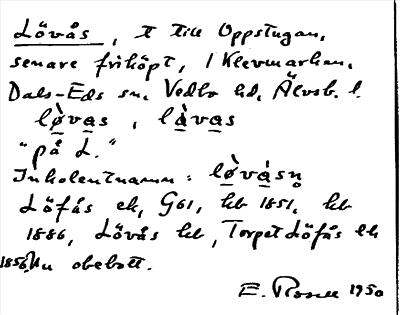 Lövås, t till Uppstugan,
senare friköpt, i Klevmarken,
Dals-Eds sn. Vedbo hd, Älvsb. l.
lø̀vas, làvas
"på L."
Inkolentnamn: lø̀vásn̥
Löfås ek, G61, hb 1851, kb
1886, Lövås kb, Torpet Löfås lk
1856, Nu obebott.
E. Rosell 1950